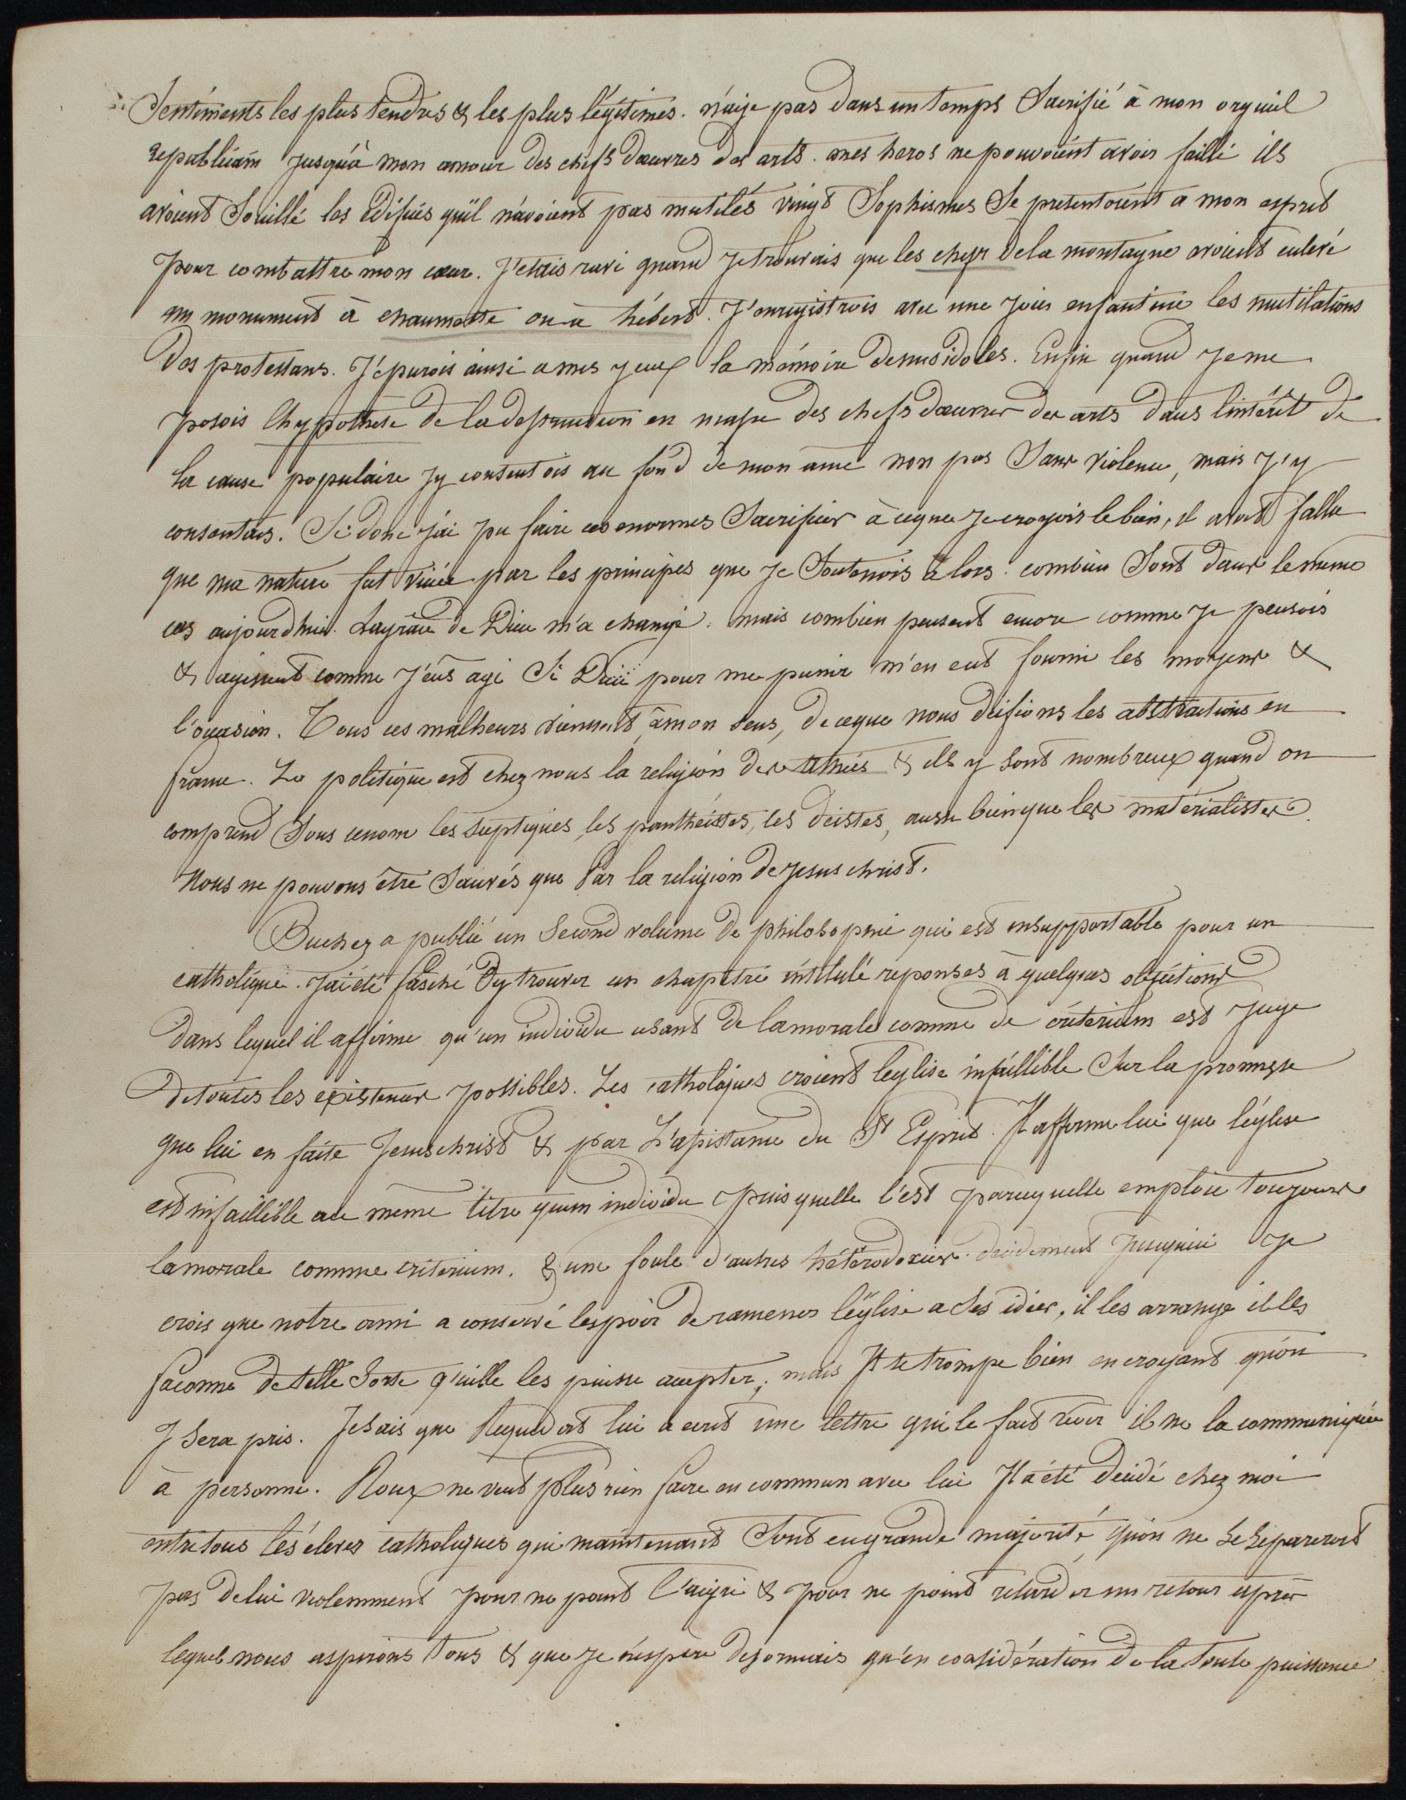 Sentiments les plus tendres & les plus légitimes. n'aije pas dans un temps Sacrifié à mon orgueil
republicain jusqu'à mon amour des chefs d'œuvres des arts. mes heros ne pouvoient avoir failli ils
avoient Souillé les Edifices qu'il n'avoient pas mutilés vingt Sophismes Se presentoient a mon esprit
pour combattre mon cœur. J'etois ravi quand Je trouvais que les chefs de la montagne avoient enlevé
un monument à chaumette ou à hébert. J'enregistrois avec une Joie enfantine les mutilations
des protestans. J'épurois ainsi a mes yeux la mémoire de mes idoles. Enfin quand Je me
posois l'hypothèse de la destruction en masse des chefs d'œuvres des arts dans l'intérêt de
la cause populaire J'y consentois au fond de mon ame non pas Sans violence, mais J'y
consentais. Si donc J'ai pu faire ces enormes Sacrifices à ceque Je croyois le bien, il avoit fallu
que ma nature fut viciée par les principes que Je Soutenois alors. combien Sont dans le meme
cas aujourd'hui. La grâce de Dieu m'a changé. mais combien pensent encore comme Je pensois
& agissent comme J'eus agi Si Dieu pour me punir m'en eut fourni les moyens &
l'occasion. Tous ces malheurs viennent, à mon sens, de ceque nous deifions les abstractions en
france. La politique est chez nous la religion des athées & ils y sont nombreux quand on
comprend Sous ce nom les sceptiques, les panthéistes, les deistes, aussi bien que les matérialistes.
Nous ne pouvons être Sauvés que Par la religion de Jesus christ.
Buchez a publié un Second volume de philosophie qui est insupportable pour un
catholique. J'ai été fasché d'y trouver un chapitre intitulé reponses à quelques objections
dans lequel il affirme qu'un individu usant de la morale comme de criterium est Juge
de toutes les existences possibles. Les catholiques croient l'eglise infaillible Sur la promesse
que lui en faite Jesus christ & par L'assistance du St Esprit. Il affirme lui que l'église
est infaillible au même titre qu'un individu puis quelle l'est parcequelle emploie toujours
la morale comme criterium. & une foule d'autres hétérodoxies. decidement Jusqu'ici Je
crois que notre ami a conservé l'espoir de ramener l'église a Ses idées, il les arrange il les
façonne de telle Sorte qu'elle les puisse accepter; mais Il se trompe bien en croyant qu'on
y Sera pris. Je sais que Requedat lui a ecrit une lettre qui le fait rever il ne la communiquée
à personne. Roux ne veut plus rien faire en commun avec lui Il a été décidé chez moi
entre tous les éleves catholiques qui maintenant Sont en grande majorité, qu'on ne Se Separeroit
pas de lui violemment pour ne point l'aigri & pour ne point retarder un retour après
lequel nous aspirons tous & que Je n'espère desormais qu'en considération de la toute puissance